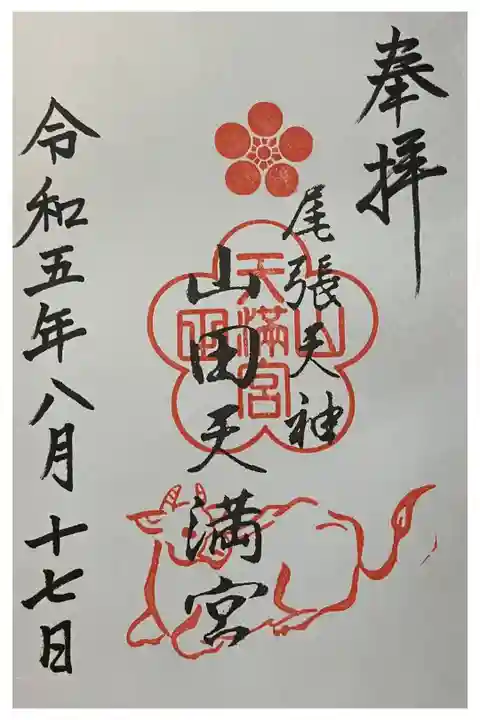 奉拝
尾張天神
山田天満宮
山田天満宮
令和五年八月十七日